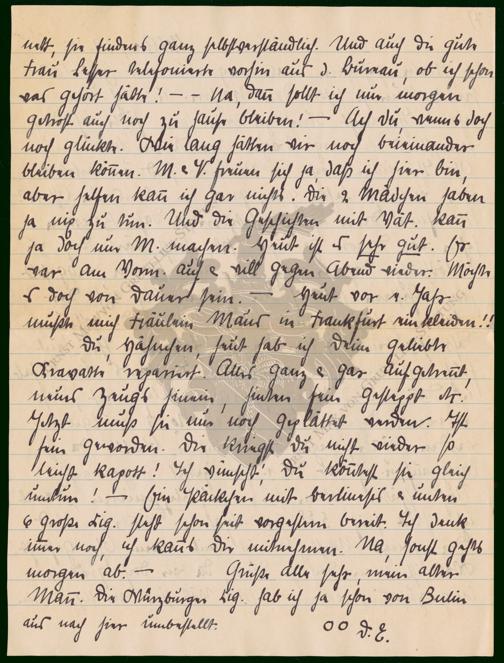 nett, sie findens ganz selbstverständlich. Und auch die gute
Frau Lesser telefonierte vorhin aus d. Bureau, ob ich schon
was gehört hätte! – – Na, dañ sollt ich nur morgen
getrost auch noch zu Hause bleiben! – Ach Du, wenns doch
noch glückte. Wie lang hätten wir noch beieinander
bleiben köñen. M. & V. freuen sich ja, daß ich hier bin,
aber helfen kañ ich gar nichts. Die 2 Mädchen haben
ja nix zu tun. Und die Geschichten mit Vat. kañ
ja doch nur M. machen. Heut ist es sehr gut. Er
war am Vorm. auf & will gegen Abend wieder. Möchte
es doch von Dauer sein. — Heut vor 1. Jahr
mußte mich Fräulein Maus in Frankfurt einkleiden!!
Du, Hähnchen, heut hab ich Deine geliebte
Krawatte repariert. Alles ganz & gar aufgetrennt,
neues Zeugs hinein, hinten fein gesteppt etc.
Jetzt muß sie nur noch geplättet werden. Ist
fein geworden. Die kriegst Du nicht wieder so
leicht kapott! Ich wünscht' Du köñtest sie gleich
umtun! — Ein Päckchen mit & unten
6 große Zig. steht schon seit vorgestern bereit. Ich denk
im̃er noch, ich kañs Dir mitnehmen. Na, sonst gehts
morgen ab. — Grüße alle sehr, mein alter
Mañ. Die Würzburger Zig. hab ich ja schon von Berlin
aus nach hier umbestellt. oo D. E.